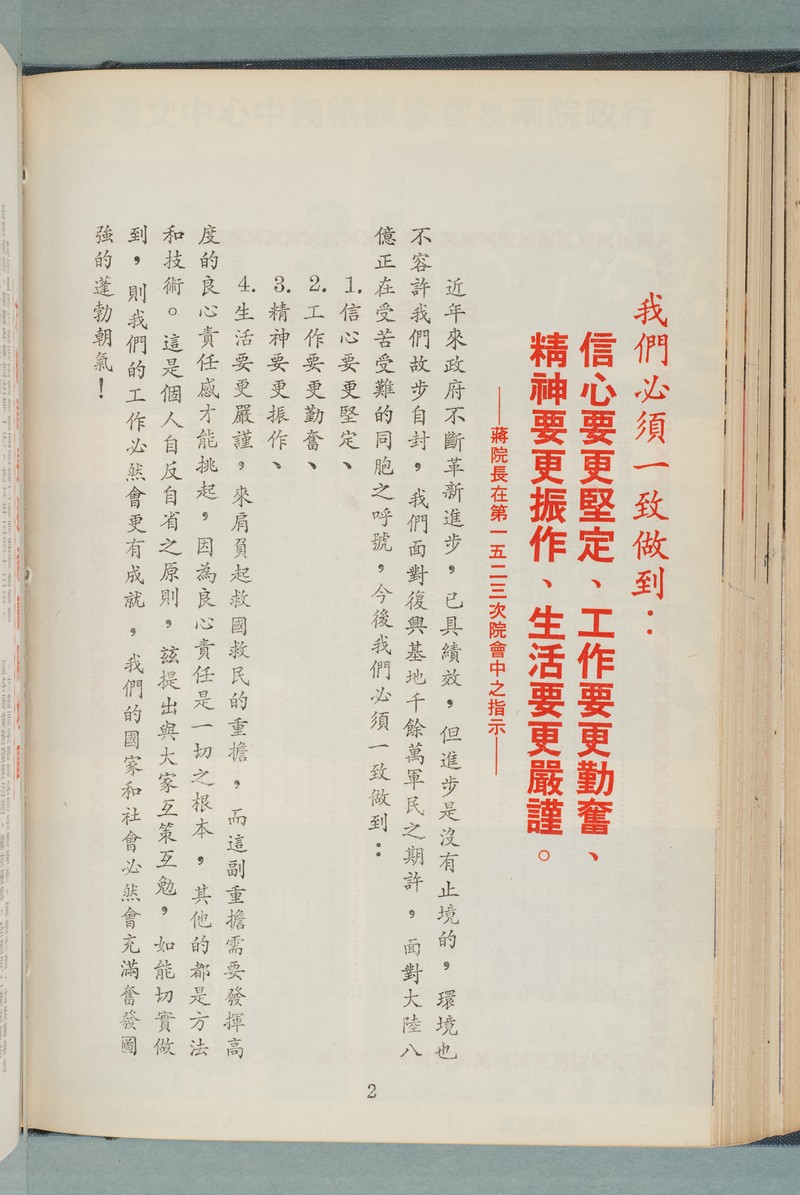 我們必須一致做到：
信心要更堅定、工作要更勤奮、
精神要更振作、生活要更嚴謹。
——蔣院長在第一五二三次院會中之指示——
近年來政府不斷革新進步，已具績效，但進步是沒有止境的，環境也
不容許我們故步自封，我們面對復興基地千餘萬軍民之期許，面對大陸八
億正在受苦受難的同胞之呼號，今後我們必須一致做到：
1.信心要更堅定、
2.工作要更勤奮、
3.精神要更振作、
4.生活要更嚴謹，來肩負起救國救民的重擔，而這副重擔需要發揮高
度的良心責任感才能挑起，因為良心責任是一切之根本，其他的都是方法
和技術。這是個人自反自省之原則，玆提出與大家互策互勉，如能切實做
到，則我們的工作必然會更有成就，我們的國家和社會必然會充滿奮發圖
強的蓬勃朝氣！
2